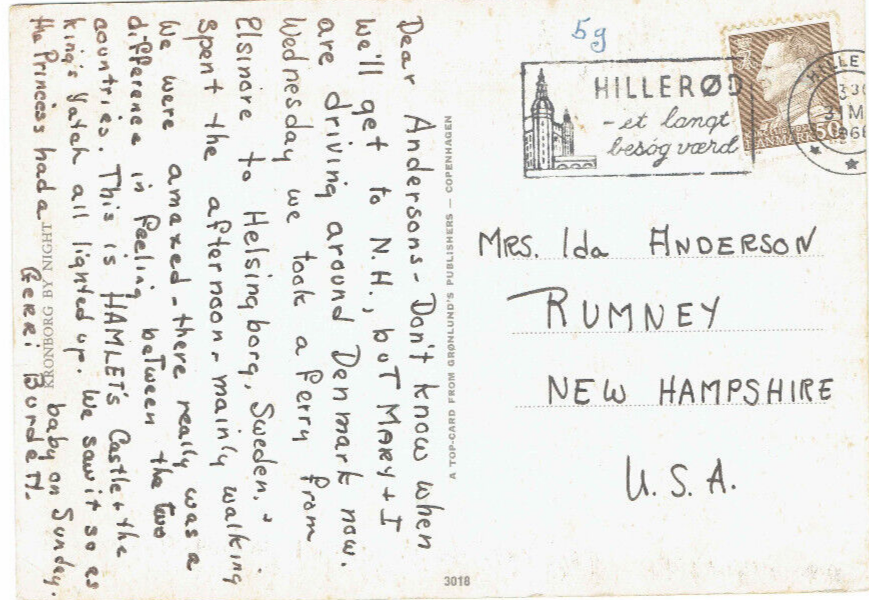 Dear Andersons - Don't know when
we'll get to N.H., buT MARY + I
are driving around Denmark now.
Wednesday we took a ferry from
Elsinore to Helsingborg, Sweden. -
Spent the afternoon - mainly walking
We were amazed - there really was a
difference in feeling between the two
countries. This is HAMLET's Castle + the
King's Yatch all lighted up. We saw it so as
the Princess had a baby on Sunday.
Gerri Burdett.
KRONBORG BY NIGHT
A TOP-CARD FROM GRØNLUND'S PUBLISHERS — COPENHAGEN
3018
5g
HILLERØD
- et langt
besøg værd
DANMARK 50
HILLE
MRS. Ida ANDERSON
RUMNEY
NEW HAMPSHIRE
U.S.A.